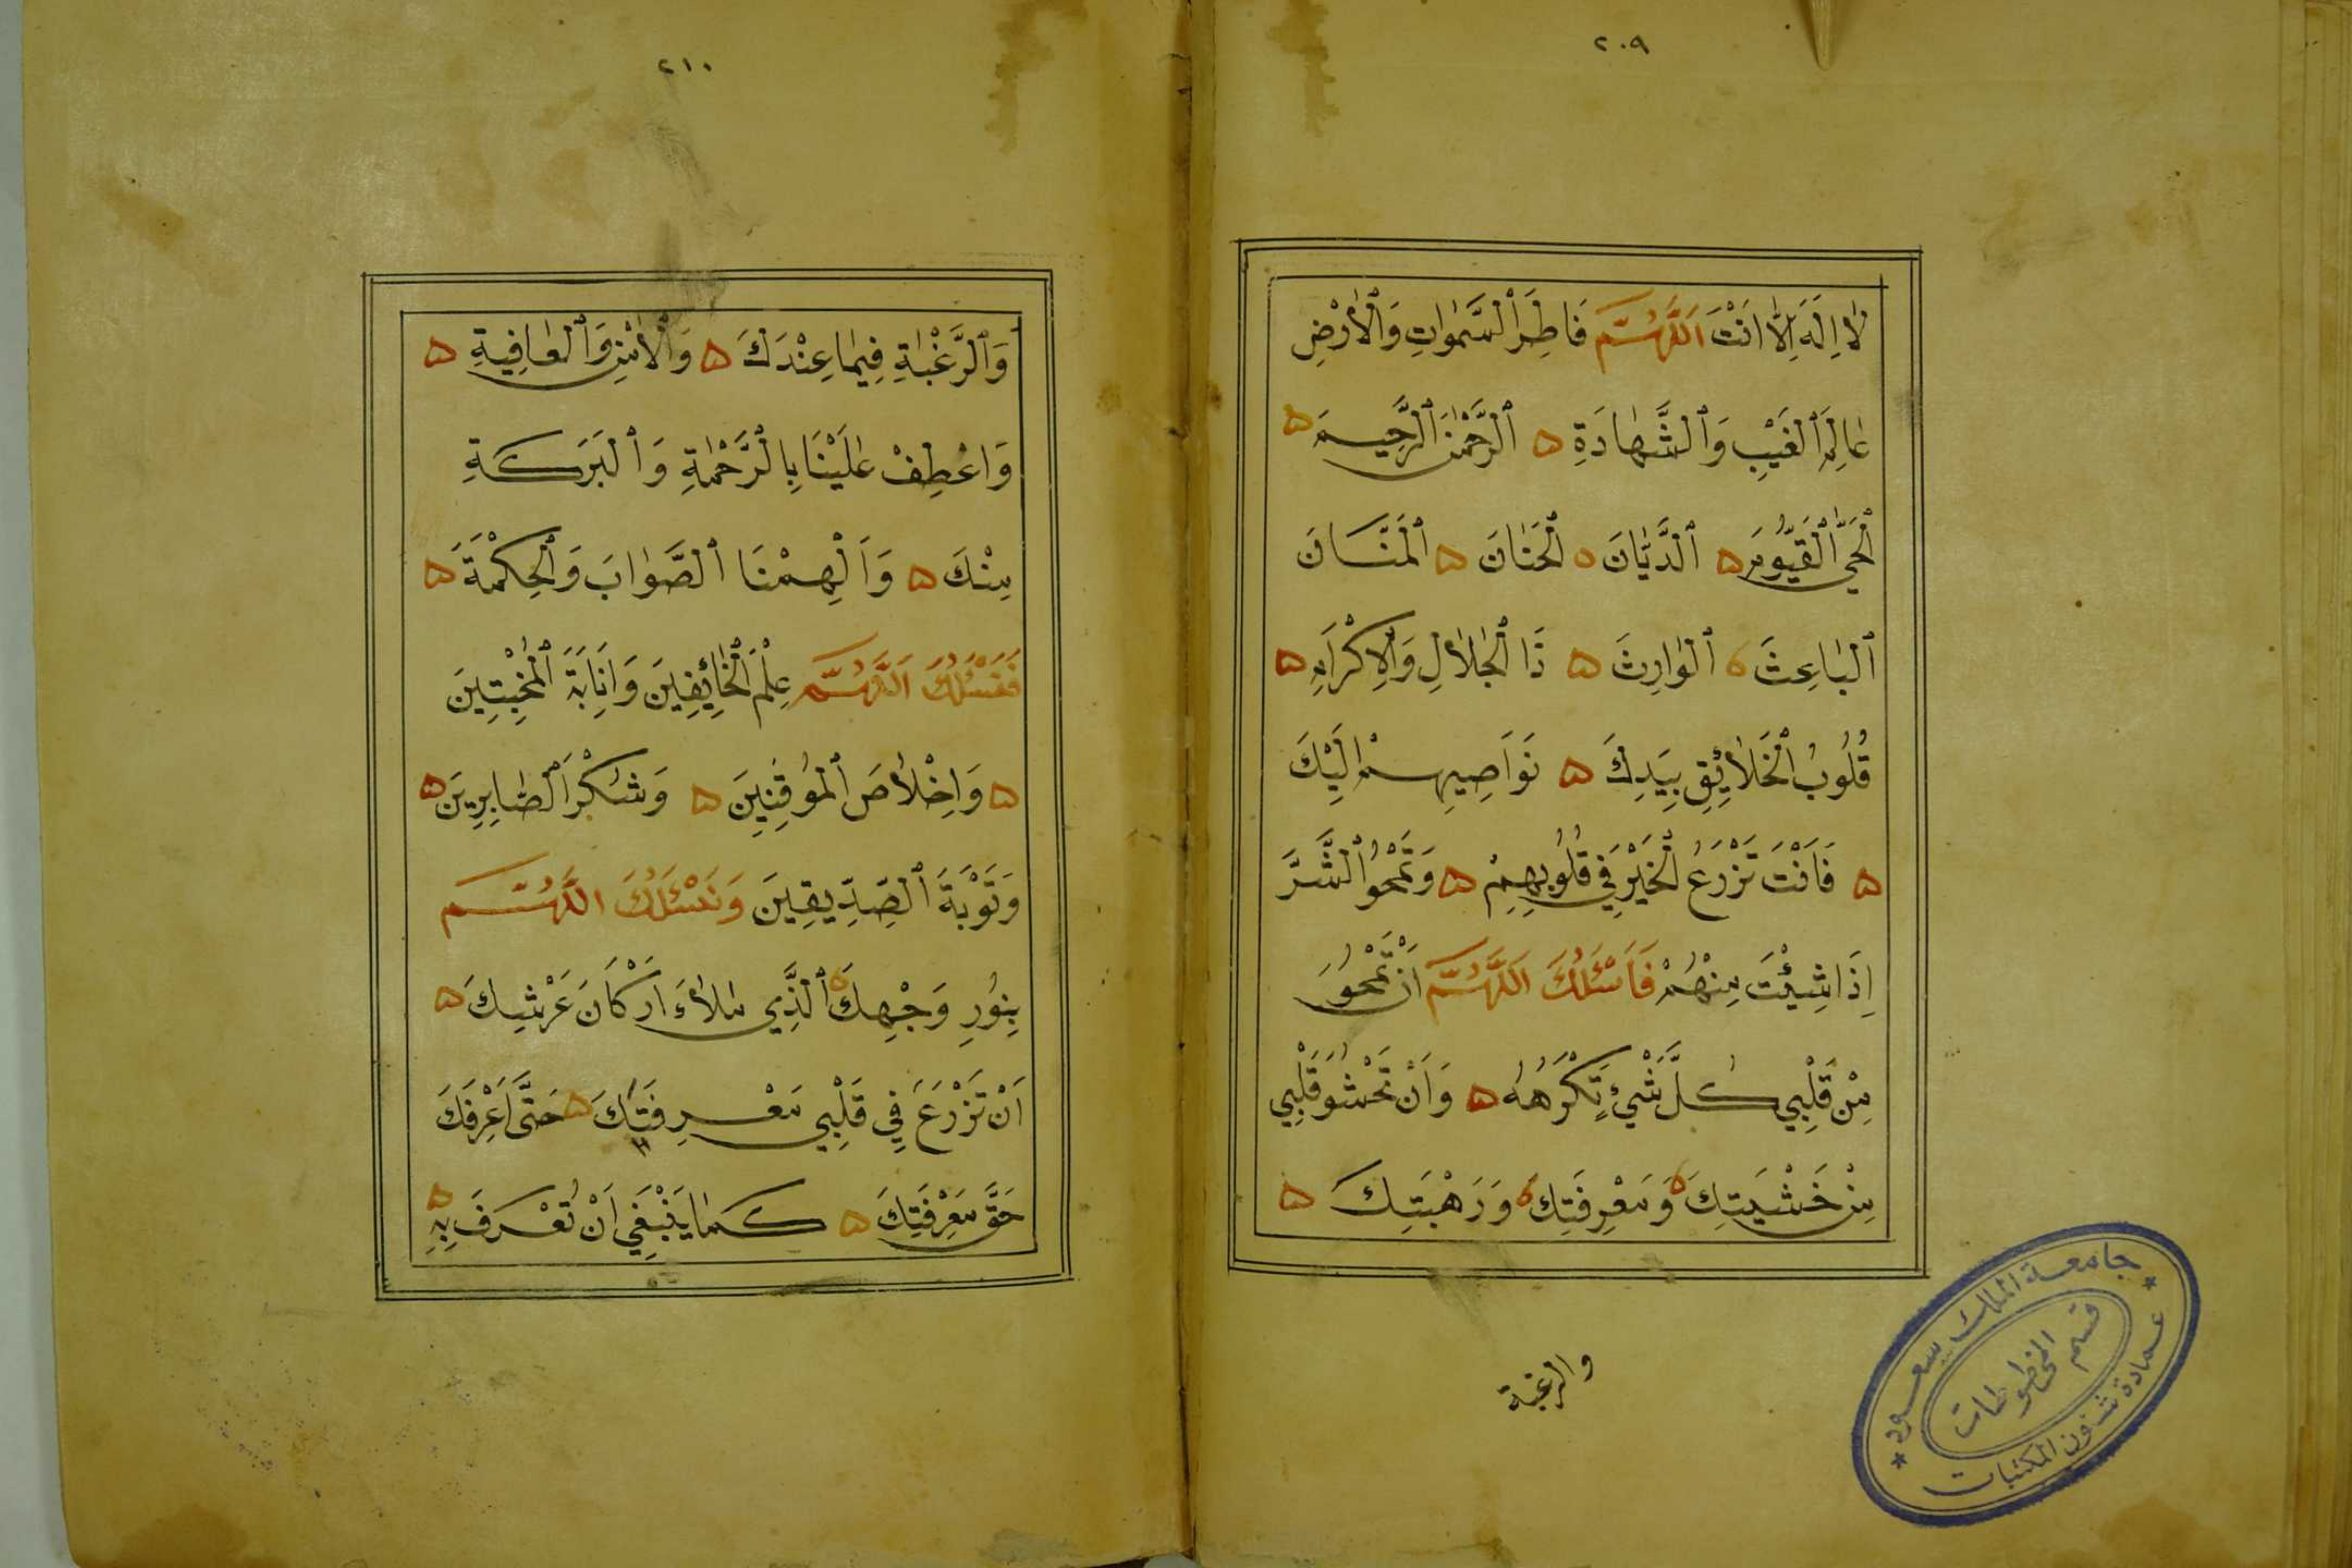 ٢٠٩
لَا اِلَهَ اِلَّا اَنْتَ اَللَّهُمَّ فَاطِرَ السَّمٰوَاتِ وَالْاَرْضِ
عَالِمَ الْغَيْبِ وَالشَّهَادَةِ ه الرَّحْمٰنَ الرَّحِيمَ ه
اَلْحَيَّ الْقَيُّومَ ه الدَّيَّانَ ه الْحَنَّانَ ه الْمَنَّانَ
الْبَاعِثَ ه الْوَارِثَ ه ذَا الْجَلَالِ وَالْاِكْرَامِ ه
قُلُوبُ الْخَلَائِقِ بِيَدِكَ ه نَوَاصِيهِمْ اِلَيْكَ
ه فَاَنْتَ تَزْرَعُ الْخَيْرَ فِي قُلُوبِهِمْ ه وَتَمْحُو الشَّرَّ
اِذَا شِئْتَ مِنْهُمْ فَاَسْئَلُكَ اَللَّهُمَّ اَنْ تَمْحُوَ
مِنْ قَلْبِي كُلَّ شَيْءٍ تَكْرَهُهُ ه وَاَنْ تَحْشُوَ قَلْبِي
مِنْ خَشْيَتِكَ ه وَمَعْرِفَتِكَ ه وَرَهْبَتِكَ ه
والرغبة
جامعة الملك سعود
قسم المخطوطات
عمادة شئون المكتبات
٢١٠
وَالرَّغْبَةِ فِيمَا عِنْدَكَ ه وَالْاَمْنِ وَالْعَافِيَةِ ه
وَاعْطِفْ عَلَيْنَا بِالرَّحْمَةِ وَالْبَرَكَةِ
مِنْكَ ه وَاَلْهِمْنَا الصَّوَابَ وَالْحِكْمَةَ ه
فَنَسْئَلُكَ اَللَّهُمَّ عِلْمَ الْخَائِفِينَ وَاِنَابَةَ الْمُخْبِتِينَ
ه وَاِخْلَاصَ الْمُوقِنِينَ ه وَشُكْرَ الصَّابِرِينَ ه
وَتَوْبَةَ الصِّدِّيقِينَ وَنَسْئَلُكَ اللَّهُمَّ
بِنُورِ وَجْهِكَ ه الَّذِي مَلَاَءَ اَرْكَانَ عَرْشِكَ ه
اَنْ تَزْرَعَ فِي قَلْبِي مَعْرِفَتَكَ ه حَتَّى اَعْرِفَكَ
حَقَّ مَعْرِفَتِكَ ه كَمَا يَنْبَغِي اَنْ تُعْرَفَ بِهِ ه